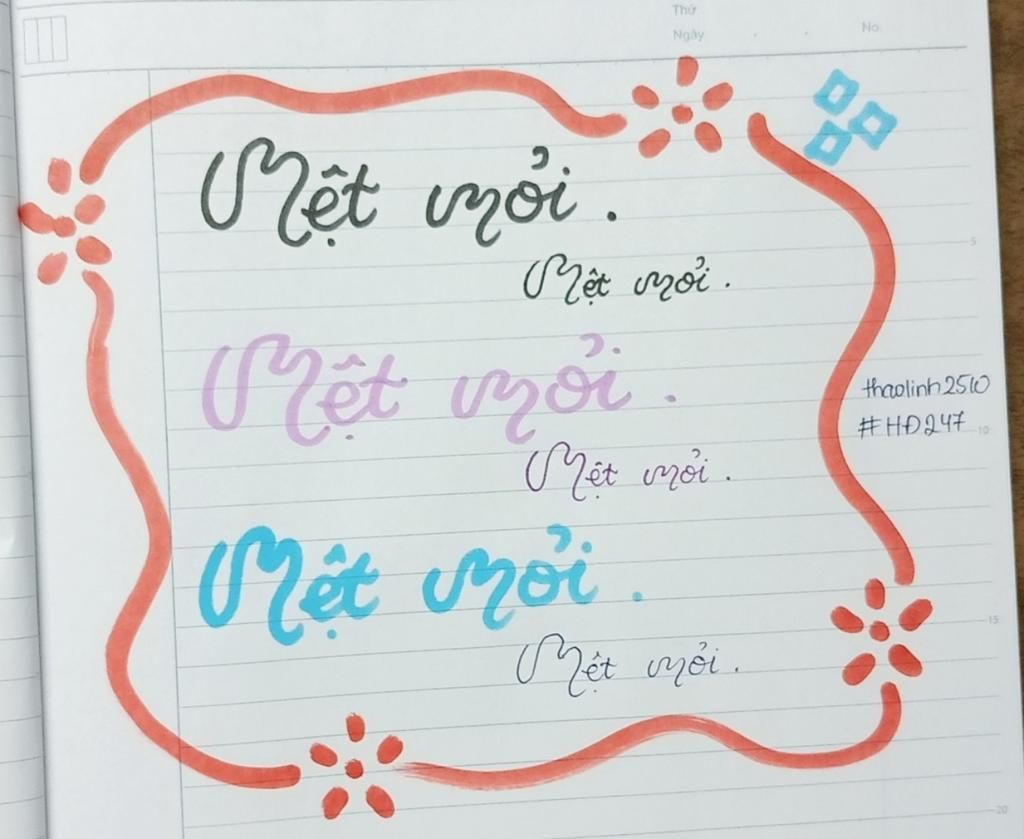 Thứ
Ngày . . No.
Mệt mỏi.
Mệt mỏi.
5
Mệt mỏi.
thaolinh2510
#HĐ247
10
Mệt mỏi.
Mệt mỏi.
15
Mệt mỏi.
20